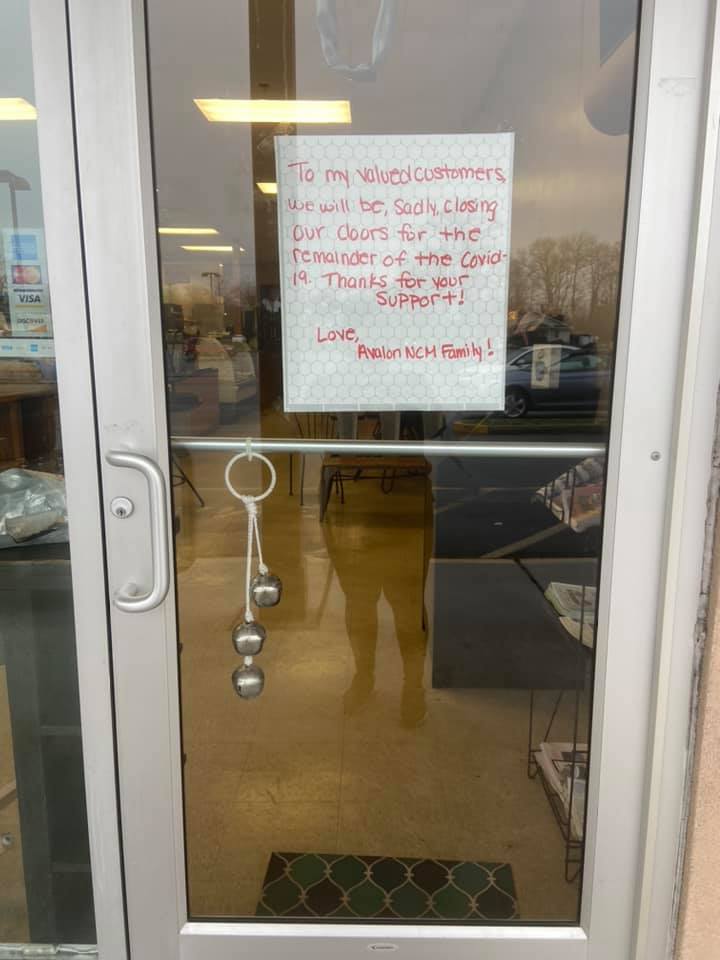 To my valued customers,
we will be, Sadly, closing
our doors for the
remainder of the Covid-
19. Thanks for your
Support!
Love,
Avalon NCM Family!
VISA
DISCOVER